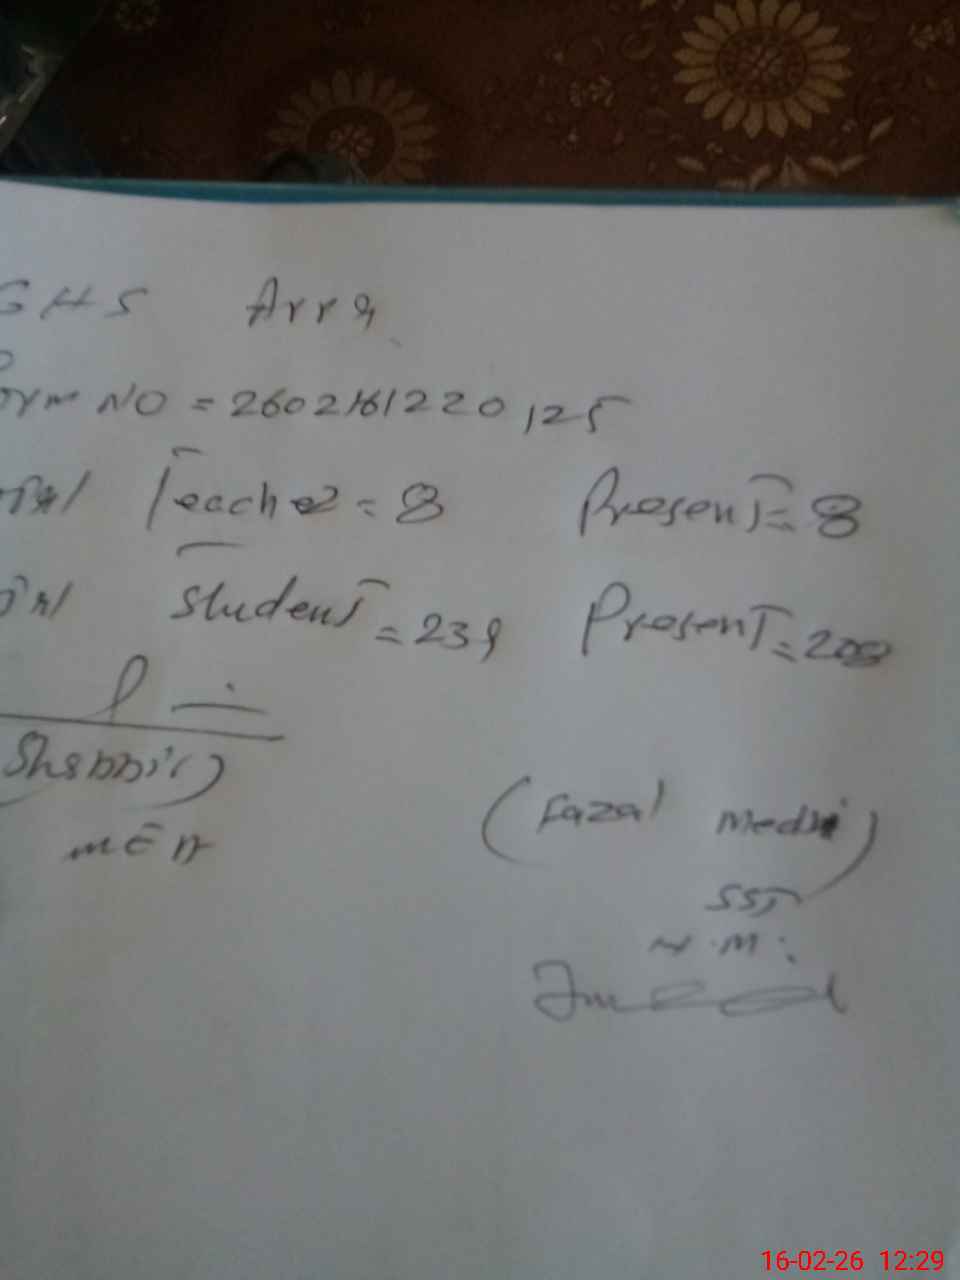 GHS Arra
Form NO = 2602161220125
Total Teacher = 8 Present = 8
Total Student = 239 Present = 208
(Shabbir)
MEA
(Fazal Medni)
SST
H.M.
16-02-26 12:29